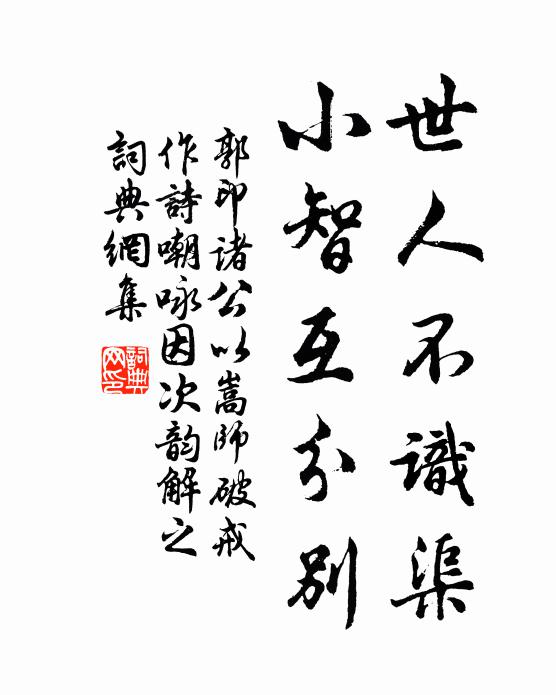 世人不識渠
小智互分別
郭印諸公以嵩師破戒
作詩嘲咏因次韵解之
詞典網集
詞典网印